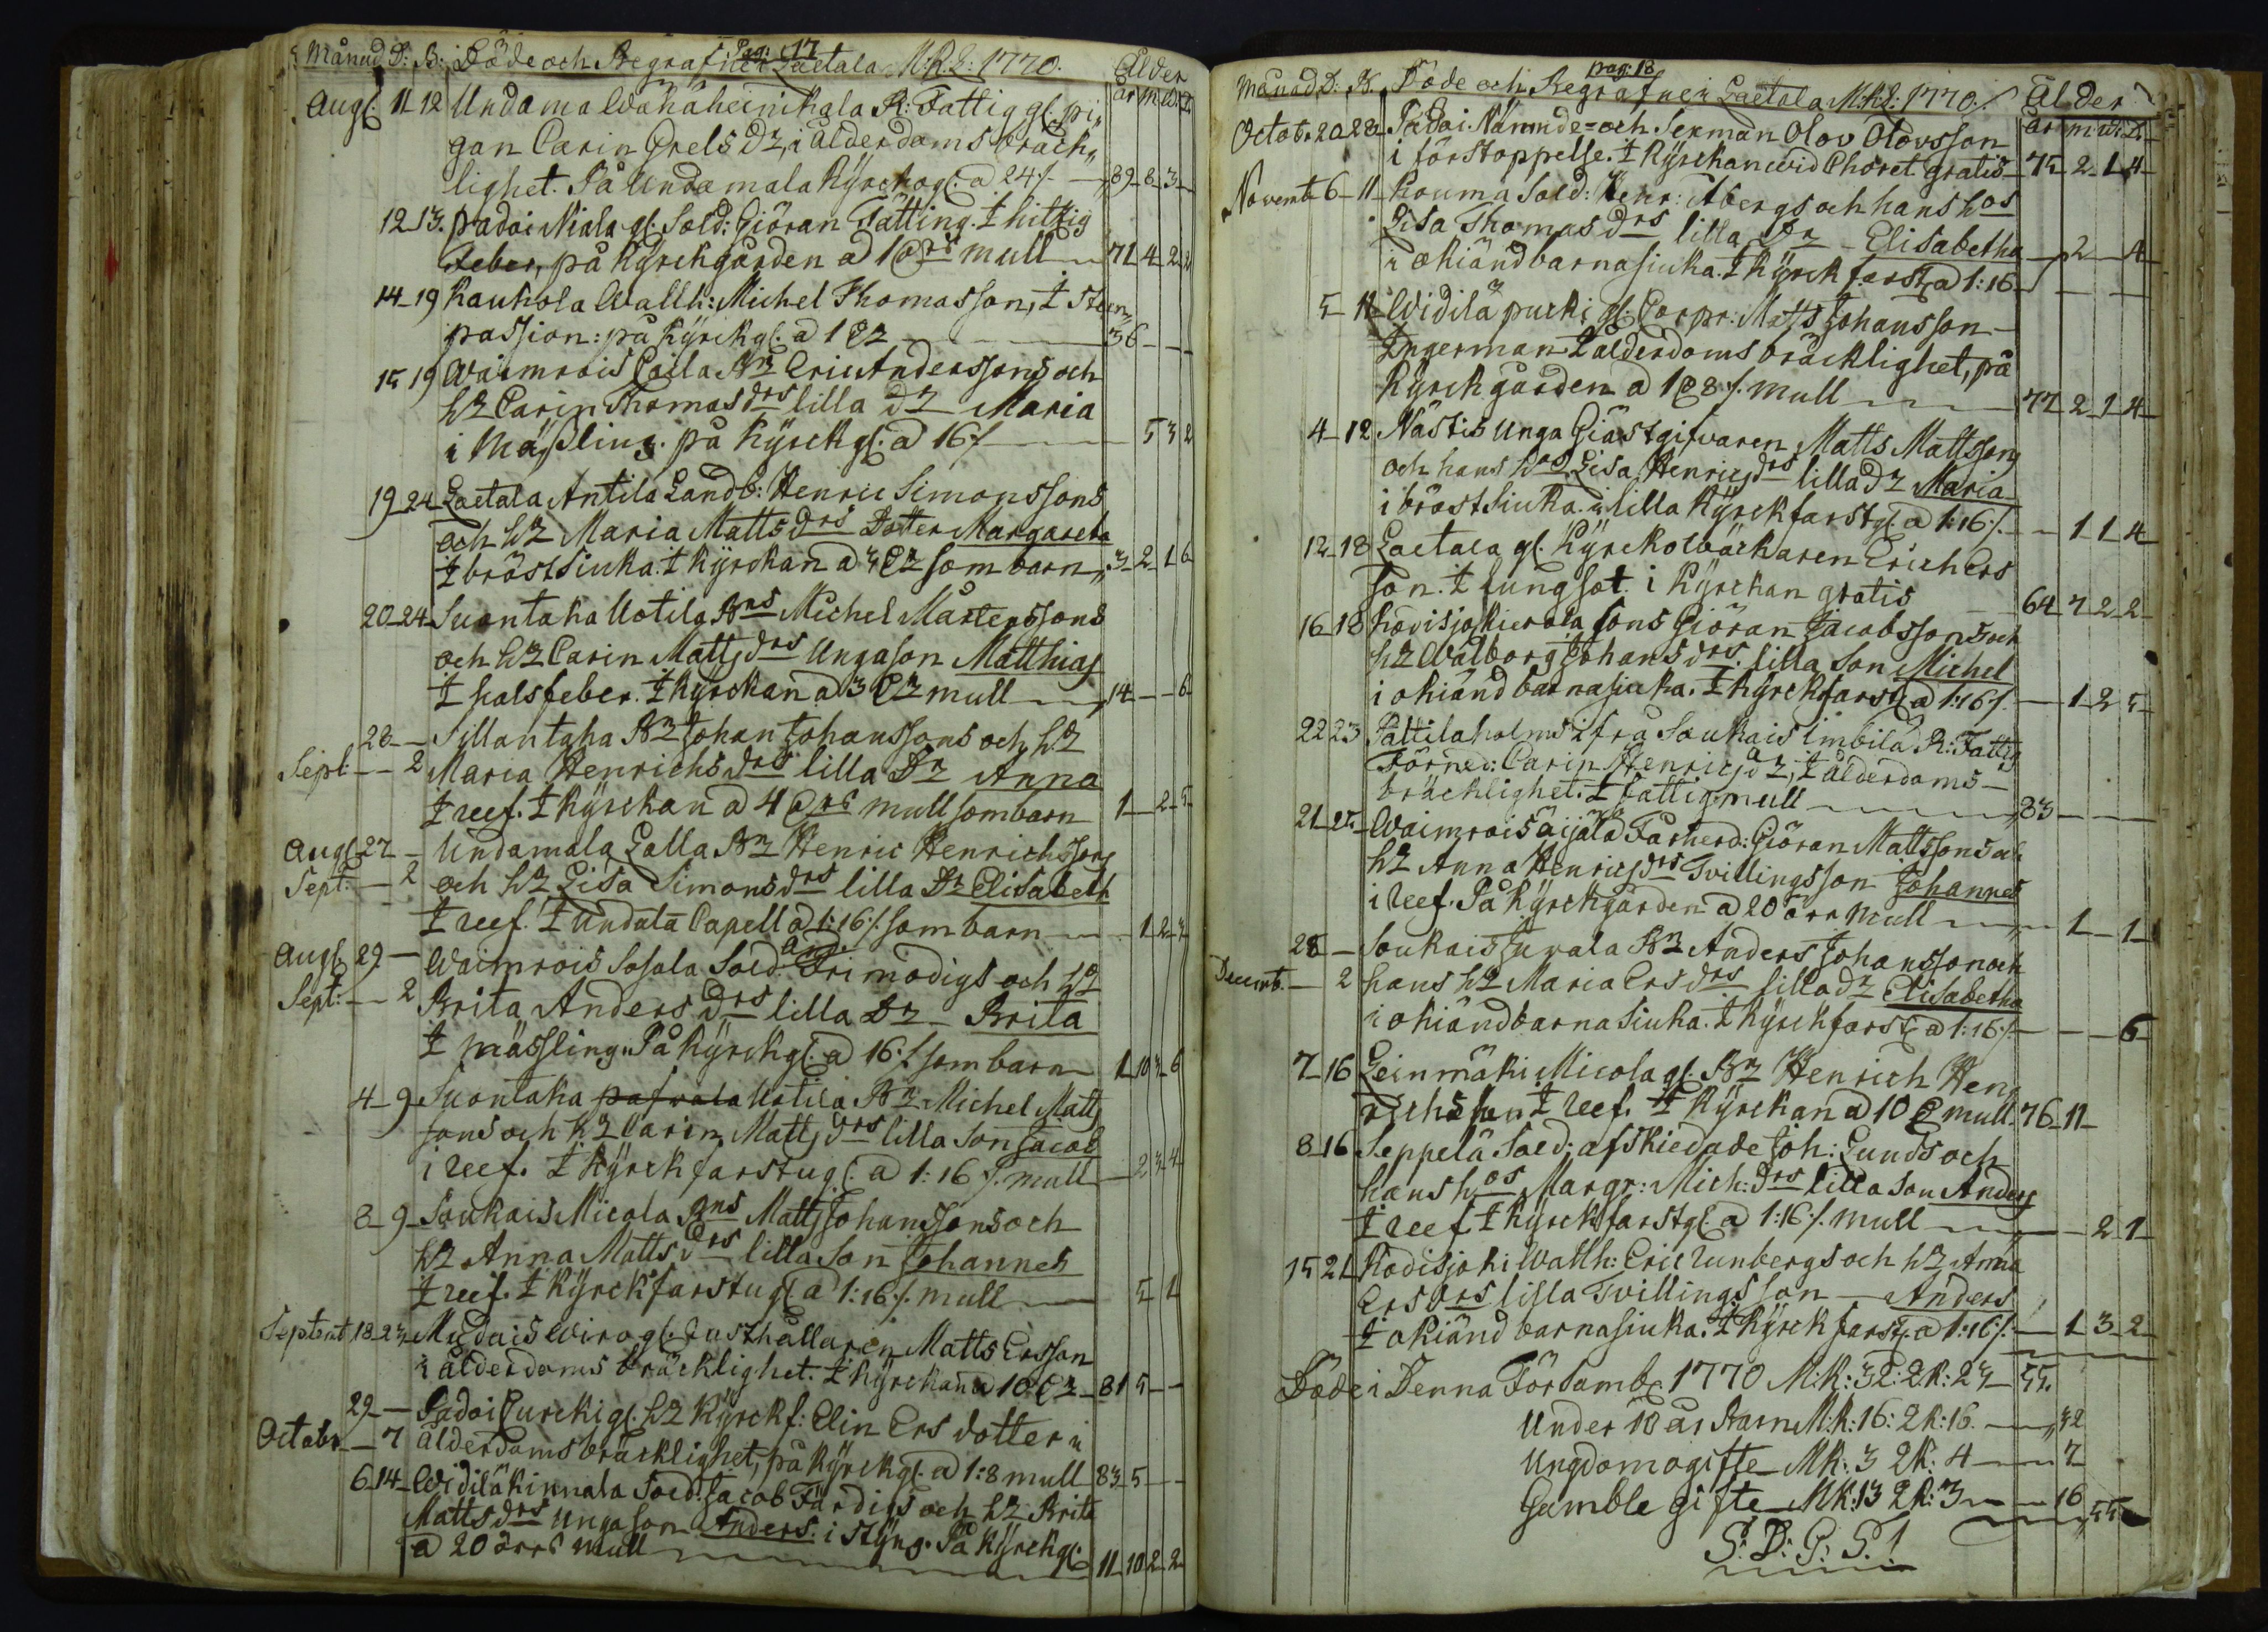 Pag: 17
Månad D: B: Döde och Begrafne i Laetala M:K:L: 1770. Ålder
år m w D
Aug: 11 12 Undamala Wähäheinikala R: Fattig gl. pi„
gan Carin Grels Dr, i ålderdoms bräck„
lighet. På Undamala Kyrckog: a 24 /. 89 8 3
12 13. padoi Niala gl. Sold: Giöran Tätting. I hitzig
feber, på Kyrckgården a 1 mull 71 4 2 2
14 19 Kaukola Wallk: Michel Thomasson, I Steen„
passion: på Kyrckg: a 1 56
15 19 Waimrois Coila Bz Eric Anderssons och
hz Carin Thomas drs lilla dz Maria
i Mäßling. på Kyrckg: a 16 /. 5 3 2
19 24 Laetala Antila Landb: Henric Simonssons
och hz Maria Matts drs Dotter Margareta
I bröstsiuka. I Kyrckan a 3 som barn 3 2 1 6
20 24 Suontaka Uotila Bns Michel Mårtenssons
och hz Carin Matts drs Unga son Matthias
I halsfeber. I Kyrckan a 3 mull 14 6
28 Sillantaka Bz Johan Johanssons och hz
Sept: 2 Maria Henrichs drs lilla Dr Anna
I reef. I Kyrckan a 4 mull som barn 1 2 5
Aug: 27 Undamala Lalla Bz Henric Henrichssons
Sept: 2 och hz Lisa Simons drs lilla Dr Elisabeth
I reef. I Undala Capell a 1:16 /. som barn 1 2 3
Aug: 29 Waimrois Sosala Sold: And. Frimodigs och hz
Sept: 2 Brita Anders drs lilla Dz Brita
I mässling. På Kyrckg: a 16 /. som barn 1 10 3 6
4 9 Suontaka pafvala Uotila Bz Michel Matts
sons och hz Carin Matts drs lilla son Jacob
i reef. I Kyrckfarstug: a 1:16 /. mull 2 3 4
8 9 Soukais Micola Bns Matts Johanssons och
hz Anna Matts drs lilla son Johannes
I reef. I Kyrckfarstug: a 1:16 /. mull 5 1
Septemt 18 23 Mudais Wiro gl. Rusthållaren Matts Ersson
i ålderdoms bräcklighet. I Kyrckan a 10 81 5
29 Padoi Purcki gl. hz Kyrckf: Elin Ers dotter i
Octobr 7 ålderdomsbräcklighet, på Kyrckg: a 1:8 mull 83 5
6 14 Widilä Kinnala Sold: Jacob Färdigs och hz Brita
Matts drs unga son Anders. i styng. På Kyrckg:
a 20 mull 11 10 2 2
pag: 18
Månad D: B. Döde och Begrafne i Laetala M:K:L: 1770. Ålder
år m w D
Octobr 20 28 Padoi Nämnde= och Sexman Olov Olovsson
i förstoppelse. I Kyrckan wid Choret gratis 75 2 1 4
Novemb 6 11 Kouma Sold: Henr: Åbergs och hans hos
Lisa Thomas drs lilla Dr Elisabetha
i okiänd barnasiuka. I Kyrckfarst: a 1:16 2 4
5 11 Widilä purcki gl. Corpr: Matts Johansson
Ingerman I ålderdoms bräcklighet, på
Kyrckgården a 1 8 /. mull 77 2 1 4
4 12 Nästis unga Giästgifvaren Matts Mattsons
och hans hos Lisa Henrics drs lilla Dz Maria
i bröstsiuka. i lilla Kyrckfarstg: a 1:16 /. 1 1 4
12 18 Laetala gl. Kyrckowäcktaren Erich Ers
son. I lungsot. i Kyrckan gratis 64 7 2 2
16 18 Kodisjoki Sons Giöran Jacobssons och
hz Walborg Johans drs. lilla Son Michel
i okiänd barnasiuka. I Kyrckfarst: a 1:16 /. 1 2 5
22 23 Pältilaholms ifrå Soukais Simbilä R: Fattig
Förned: Carin Henrics dz, I ålderdoms
bräcklighet. I fattigmull 83
21 25 Waimrois äijälä Fårherd: Giöran Mattssons och
hz Anna Henrics drs Tvillingsson Johannes
i reef. På Kyrckgården a 20 mull 1 1
28 Soukais Juvala Bz Anders Johansson och
Decemb. 2 hans hz Maria Ers drs lilla dz Elisabetha
i okiänd barnasiuka. I Kyrckfarst: a 1:16 /. 6
7 16 Leinmäki Micola gl. Bz Henrich Hen„
richsson I reef. I Kyrckan a 10 mull 76 11
8 16 Seppelä Sold: afskiedade Joh: Lunds och
hans hos Margr: Mich: drs lilla son Anders
I reef I Kyrckfarstg: a 1:16 /. mull 2 1
15 21 Kodisjoki Wallk: Eric Runbergs och hz Anna
Ers drs lilla Tvillings son Anders
I okiänd barnasiuka. I Kyrckfarst: a 1:16 /. 1 3 2
Döde i Denna Församb: 1770 M:K: 32: Q:K: 23 55.
Under 10 år Barn M:K: 16: QK: 16. 32
Ungdom ogifte MK: 3 QK: 4 7
Gamble gifte MK: 13 QK: 3 16 55
S: D: G: S: !